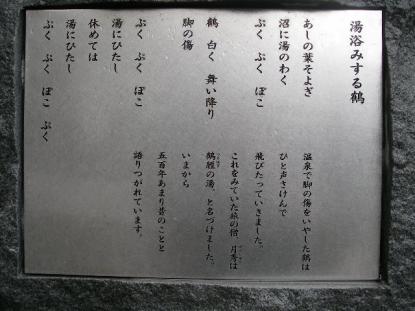 湯浴みする鶴
あしの葉そよぎ
沼に湯のわく
ぷく ぷく ぽこ
鶴 白く 舞い降り
脚の傷
ぷく ぷく ぽこ
湯にひたし
休めては
湯にひたし
ぷく ぷく ぽこ ぷく
温泉で脚の傷をいやした鶴は
ひと声さけんで
飛びたっていきました。
これをみていた旅の僧 月秀は
鶴脛の湯、と名づけました。
いまから
五百年あまり昔のことと
語りつがれています。